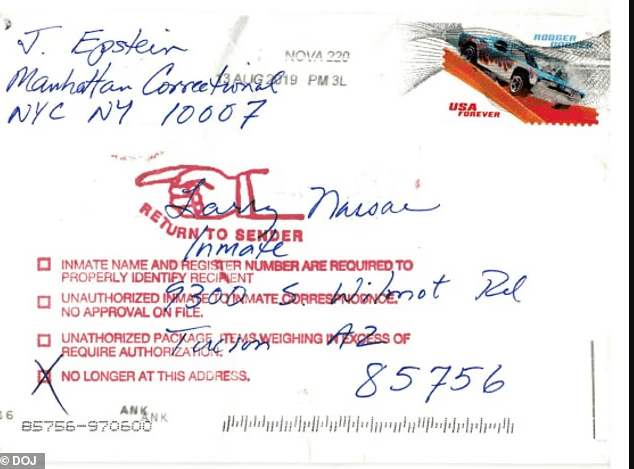 J. Epstein
Manhattan Correctional
NYC NY 10007
NOVA 220
13 AUG 2019 PM 3L
USA
RODGER DODGER
USA
FOREVER
RETURN TO SENDER
Larry Nassar
Inmate
9300 S Wilmot Rd
Tucson AZ
85756
INMATE NAME AND REGISTER NUMBER ARE REQUIRED TO
PROPERLY IDENTIFY RECIPIENT
UNAUTHORIZED INMATE TO INMATE CORRESPONDENCE.
NO APPROVAL ON FILE.
UNATHORIZED PACKAGE. ITEMS WEIGHING IN EXCESS OF
REQUIRE AUTHORIZATION.
X NO LONGER AT THIS ADDRESS.
ANK
ANK
85756-970600
© DOJ